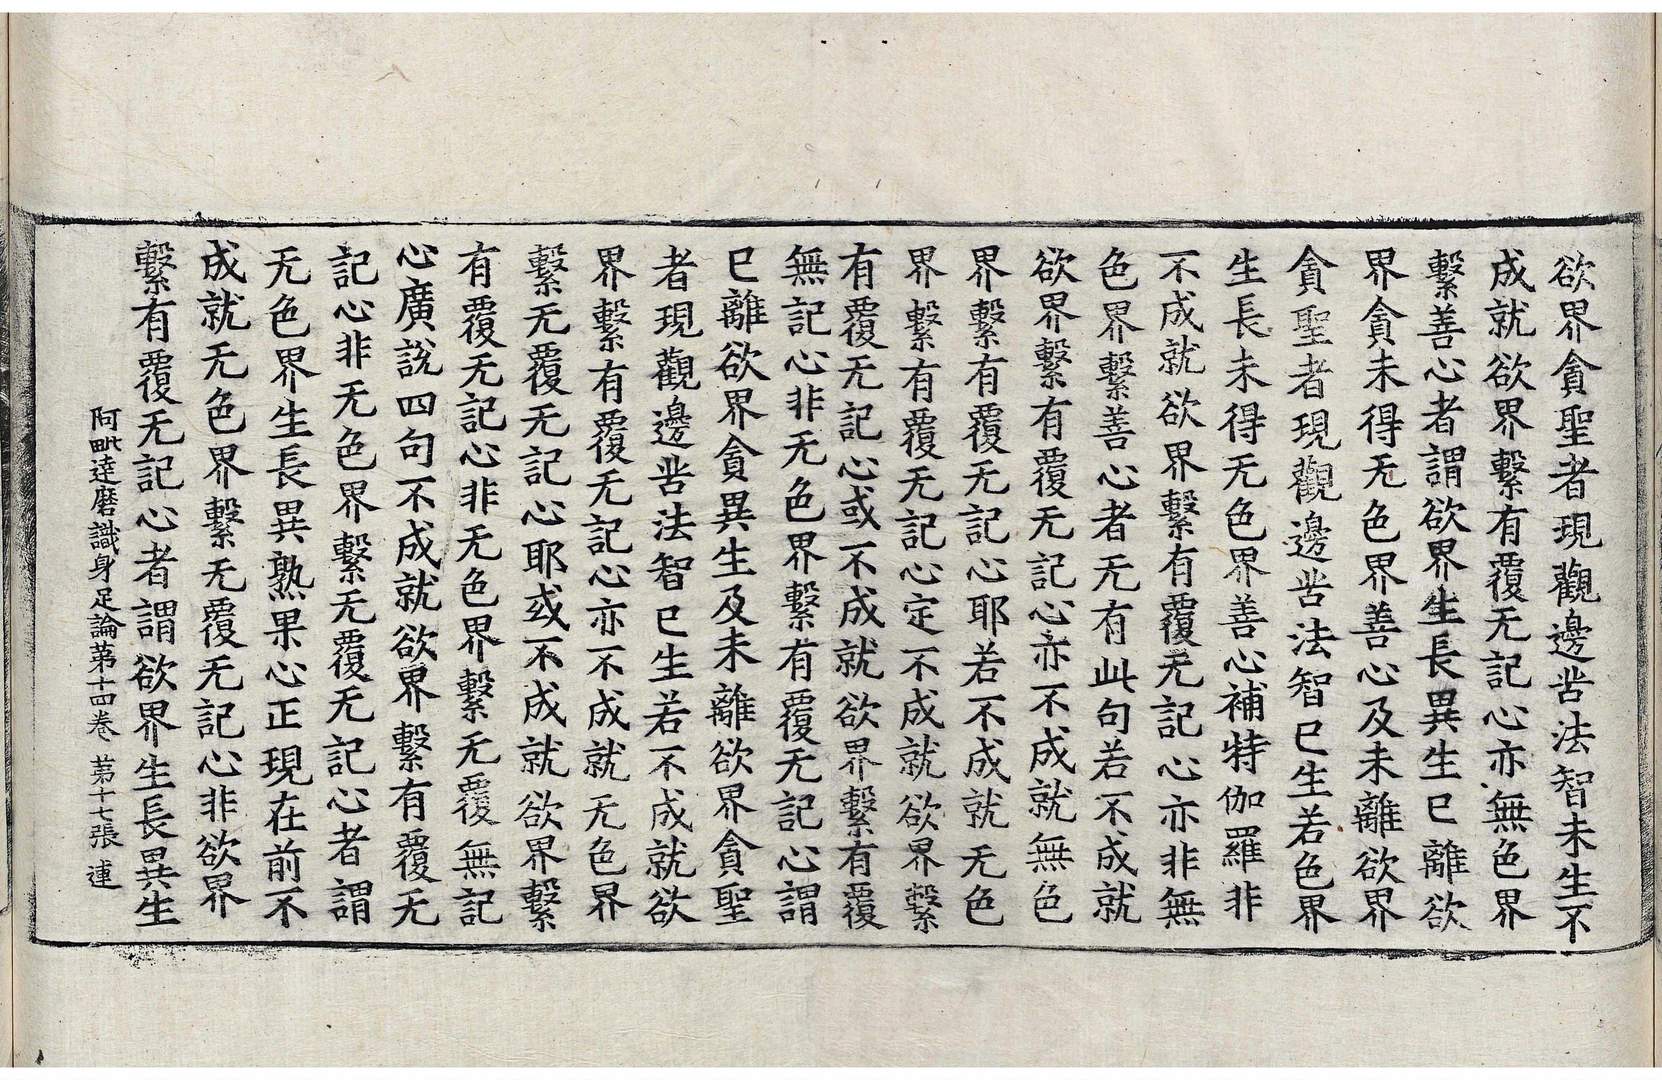 欲界貪聖者現觀邊苦法智未生不
成就欲界繫有覆无記心亦無色界
繫善心者謂欲界生長異生已離欲
界貪未得无色界善心及未離欲界
貪聖者現觀邊苦法智已生若色界
生長未得无色界善心補特伽羅非
不成就欲界繫有覆无記心亦非無
色界繫善心者无有此句若不成就
欲界繫有覆无記心亦不成就無色
界繫有覆无記心耶若不成就无色
界繫有覆无記心定不成就欲界繫
有覆无記心或不成就欲界繫有覆
無記心非无色界繫有覆无記心謂
已離欲界貪異生及未離欲界貪聖
者現觀邊苦法智已生若不成就欲
界繫有覆无記心亦不成就无色界
繫无覆无記心耶或不成就欲界繫
有覆无記心非无色界繫无覆無記
心廣說四句不成就欲界繫有覆无
記心非无色界繫无覆无記心者謂
无色界生長異熟果心正現在前不
成就无色界繫无覆无記心非欲界
繫有覆无記心者謂欲界生長異生
阿毗達磨識身足論第十四卷 第十七張 連